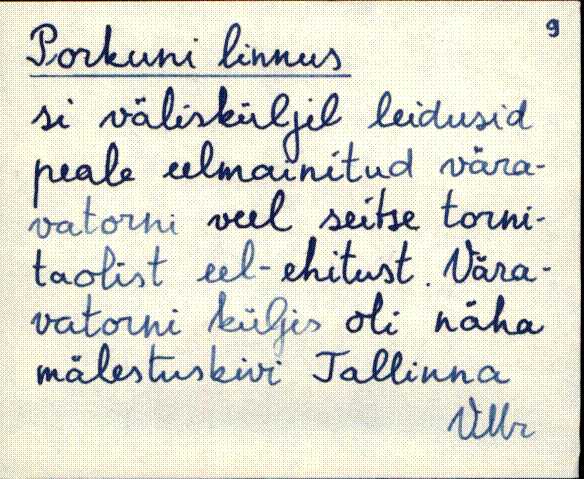 9
Porkuni linnus
si välisküljil leidusid
peale eelmainitud vära-
vatorni veel seitse torni-
taolist eel-ehitust. Vära-
vatorni küljis oli näha
mälestuskivi Tallinna